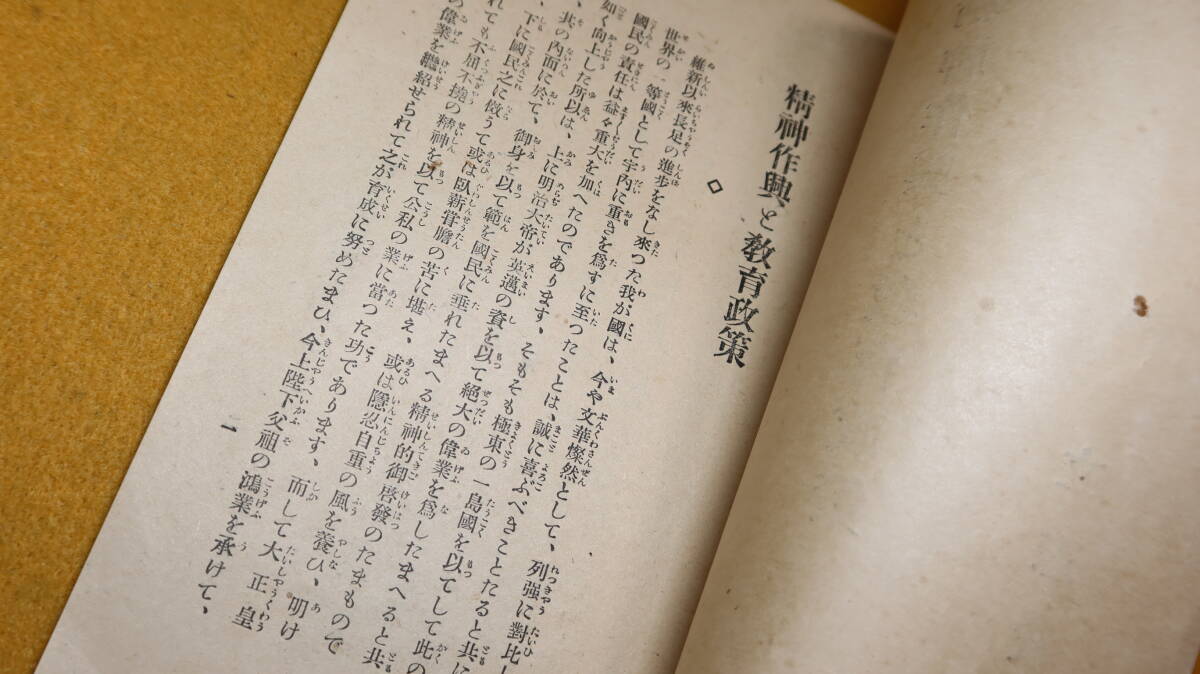 精神作興と教育政策
◇
維新以來長足の進歩をなし來つた我が國は、今や文華燦然として、列强に對比し
世界の一等國として宇內に重きを爲すに至つたことは、誠に喜ぶべきことたると共に
國民の責任は益々重大を加へたのであります、そもそも極東の一島國を以てして此の
如く向上した所以は、上に明治大帝が英邁の資を以て絕大の偉業を爲したまへると共
、其の內面に於て、御身を以て範を國民に垂れたまへる精神的御啓發のたまもので
、下に國民之に倣うて或は臥薪甞膽の苦に堪え、或は隱忍自重の風を養ひ、明け
れても不屈不撓の精神を以て公私の業に當つた功であります、而して大正皇
の偉業を繼紹せられて之が育成に努めたまひ、今上陛下父祖の鴻業を承けて、
一